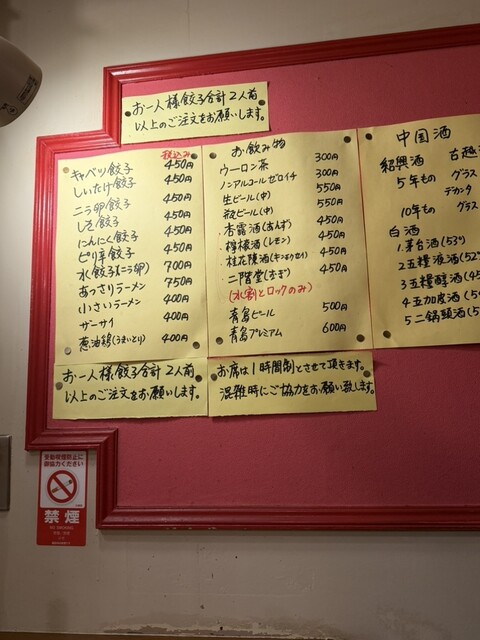 お一人様餃子合計2人前
以上のご注文をお願いします。
税込み
キャベツ餃子 450円
しいたけ餃子 450円
ニラ卵餃子 450円
しそ餃子 450円
にんにく餃子 450円
ピリ辛餃子 450円
水餃子(ニラ卵) 700円
あっさりラーメン 750円
小さいラーメン 400円
ザーサイ 400円
葱油鶏(うまいとり) 400円
お飲み物
ウーロン茶 300円
ノンアルコールゼロイチ 300円
生ビール(中) 550円
瓶ビール(中) 550円
杏露酒(あんず) 450円
檸檬酒(レモン) 450円
桂花陳酒(キンモクセイ) 450円
二階堂(むぎ) 450円
(水割とロックのみ)
青島ビール 500円
青島プレミアム 600円
中国酒
紹興酒 古越
5年もの グラス
デカンタ
10年もの グラス
白酒
1.茅台酒(53°)
2.五糧液酒(52°
3.五糧醇酒(45
4.五加皮酒(54
5.二鍋頭酒(5
お一人様餃子合計2人前
以上のご注文をお願いします。
お席は1時間制とさせて頂きます。
混雑時にご協力をお願い致します。
受動喫煙防止に
御協力ください
禁煙
NO SMOKING